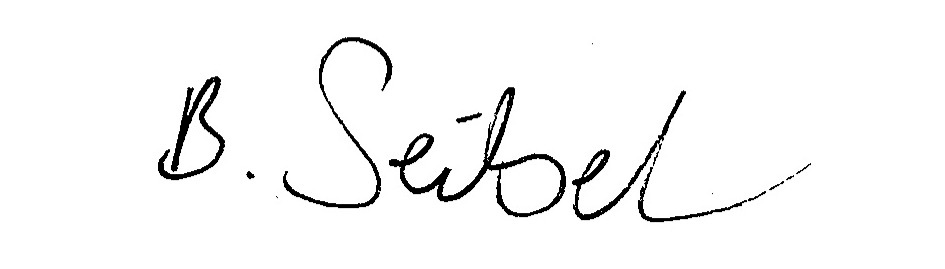 B. Seibel